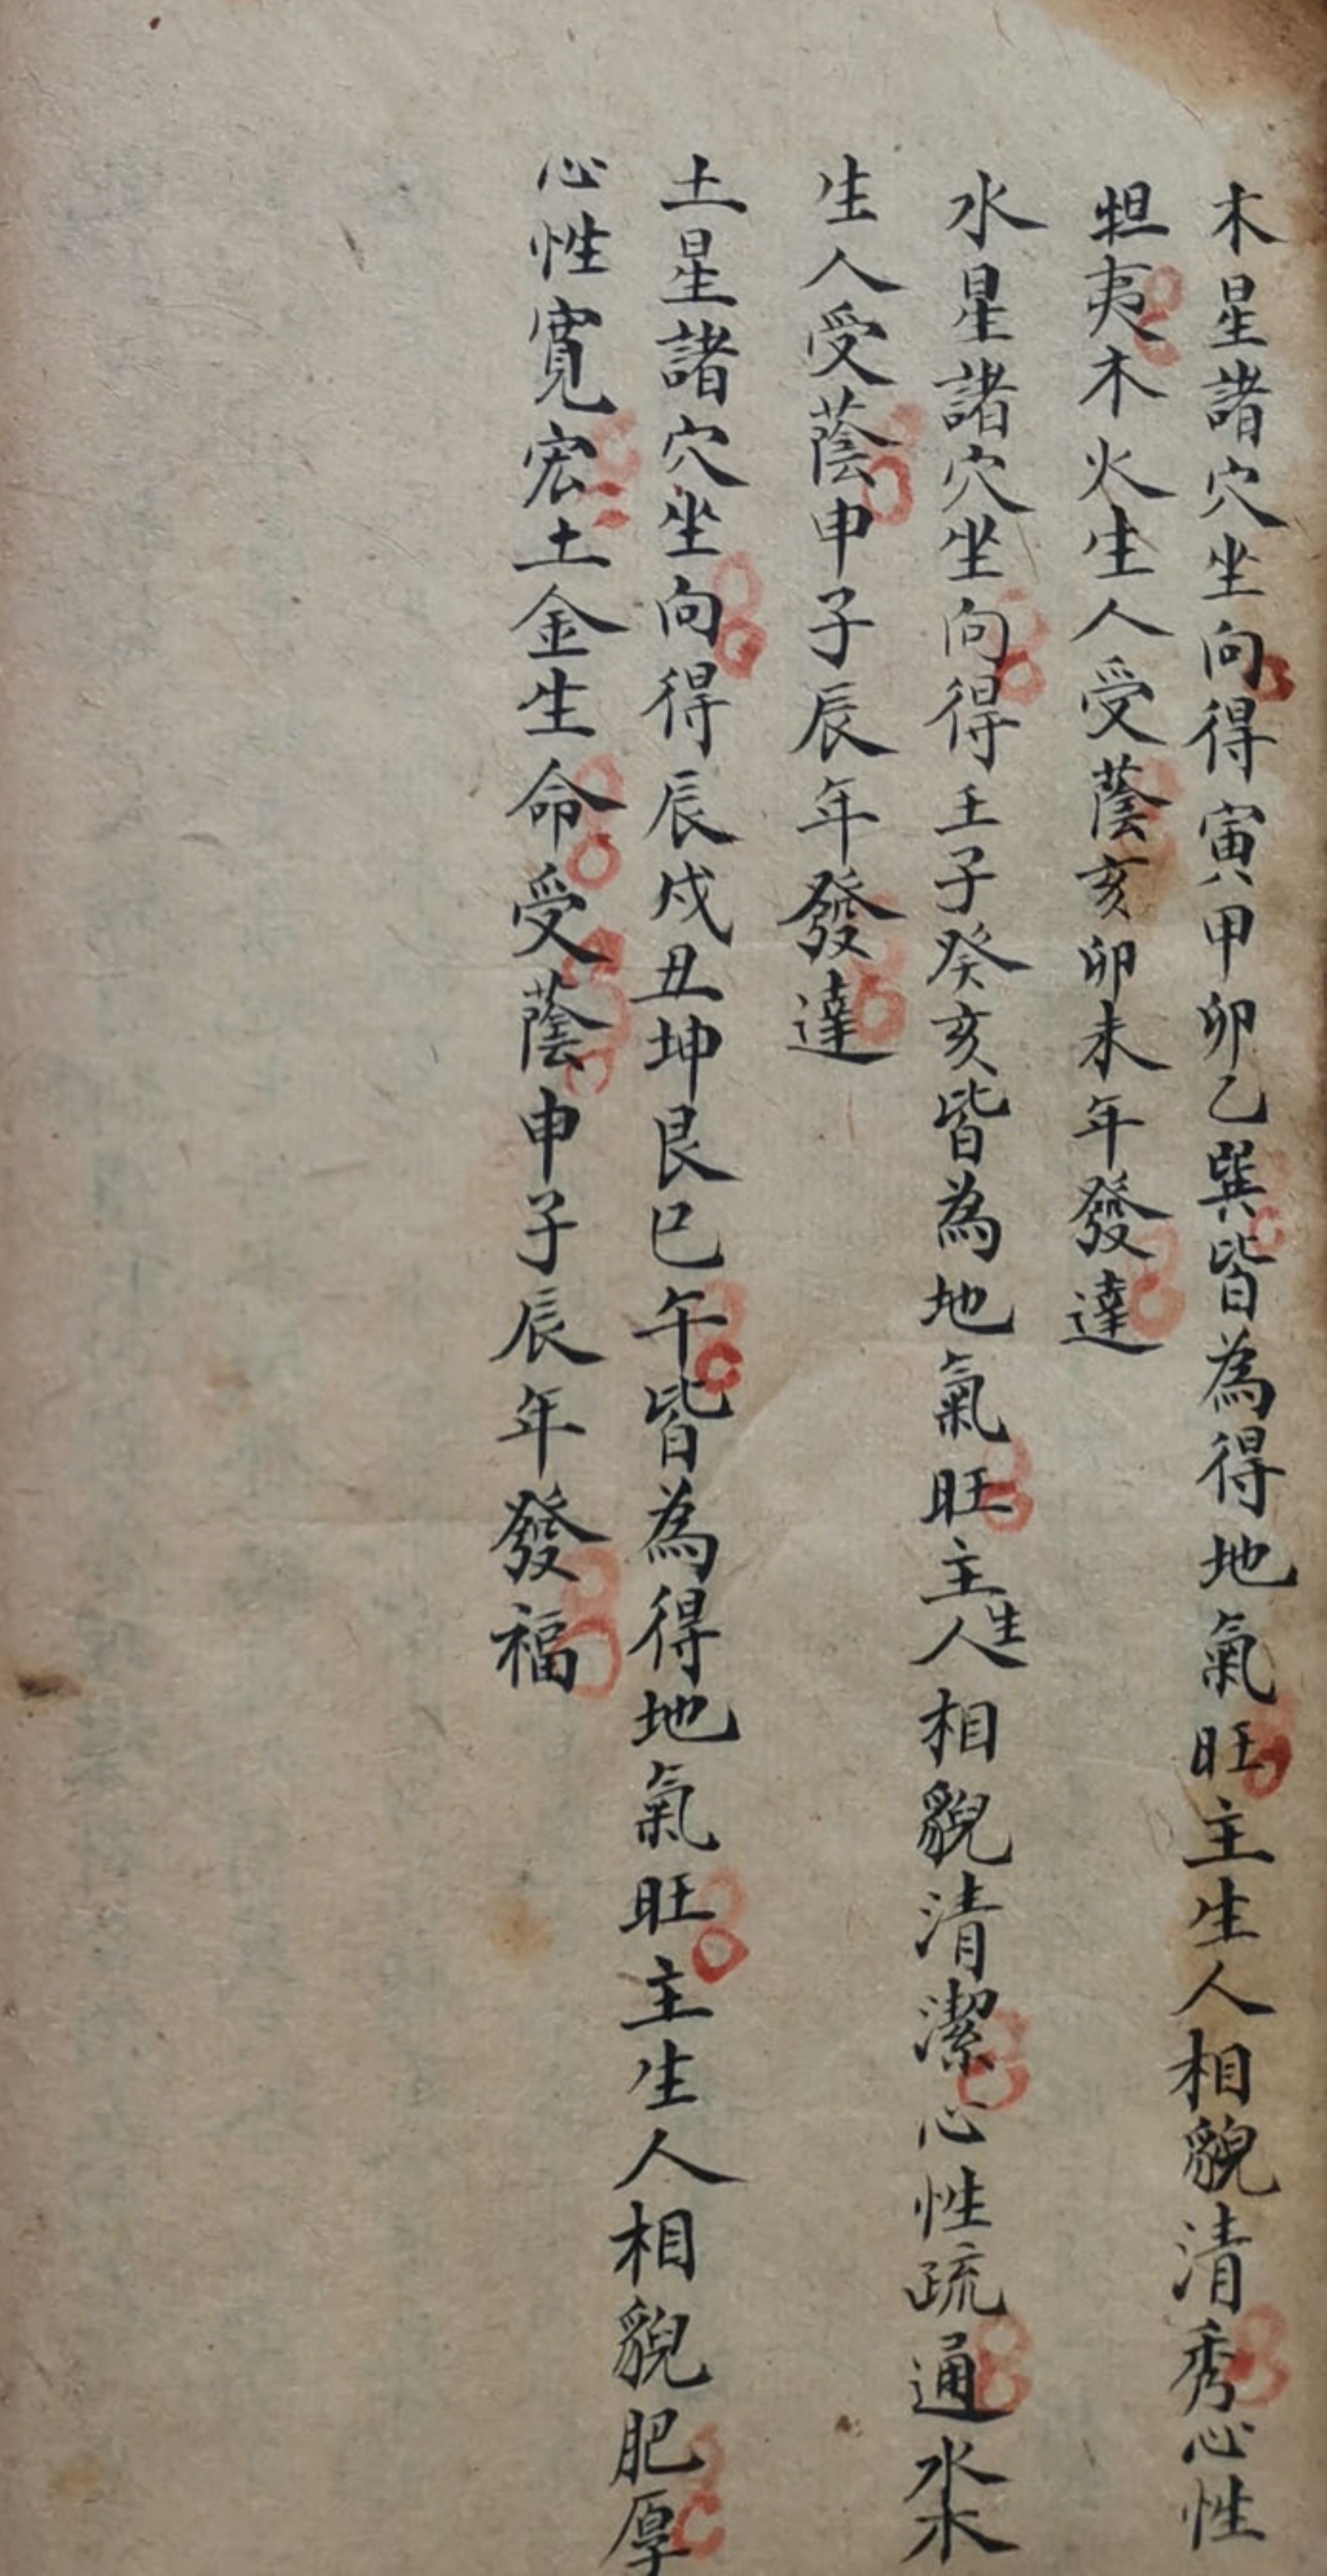 木星諸穴坐向得寅甲卯乙巽皆為得地氣旺主生人相貌清秀心性
坦夷木火生人受蔭亥卯未年發達
水星諸穴坐向得壬子癸亥皆為地氣旺主生人相貌清潔心性疏通水木
生人受蔭申子辰年發達
土星諸穴坐向得辰戌丑坤艮巳午皆為得地氣旺主生人相貌肥厚
心性寬宏土金生命受蔭申子辰年發福